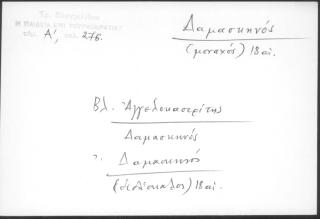 Τρ. Ευαγγελίδου
Η ΠΑΙΔΕΙΑ ΕΠΙ ΤΟΥΡΚΟΚΡΑΤΙΑΣ
τόμ. Α', σελ. 276.
Δαμασκηνός
(μοναχός) 18 αἰ.
Βλ. Ἀγγελοκαστρίτης
Δαμασκηνός
Δαμασκηνός
(διδάσκαλος) 18 αἰ.